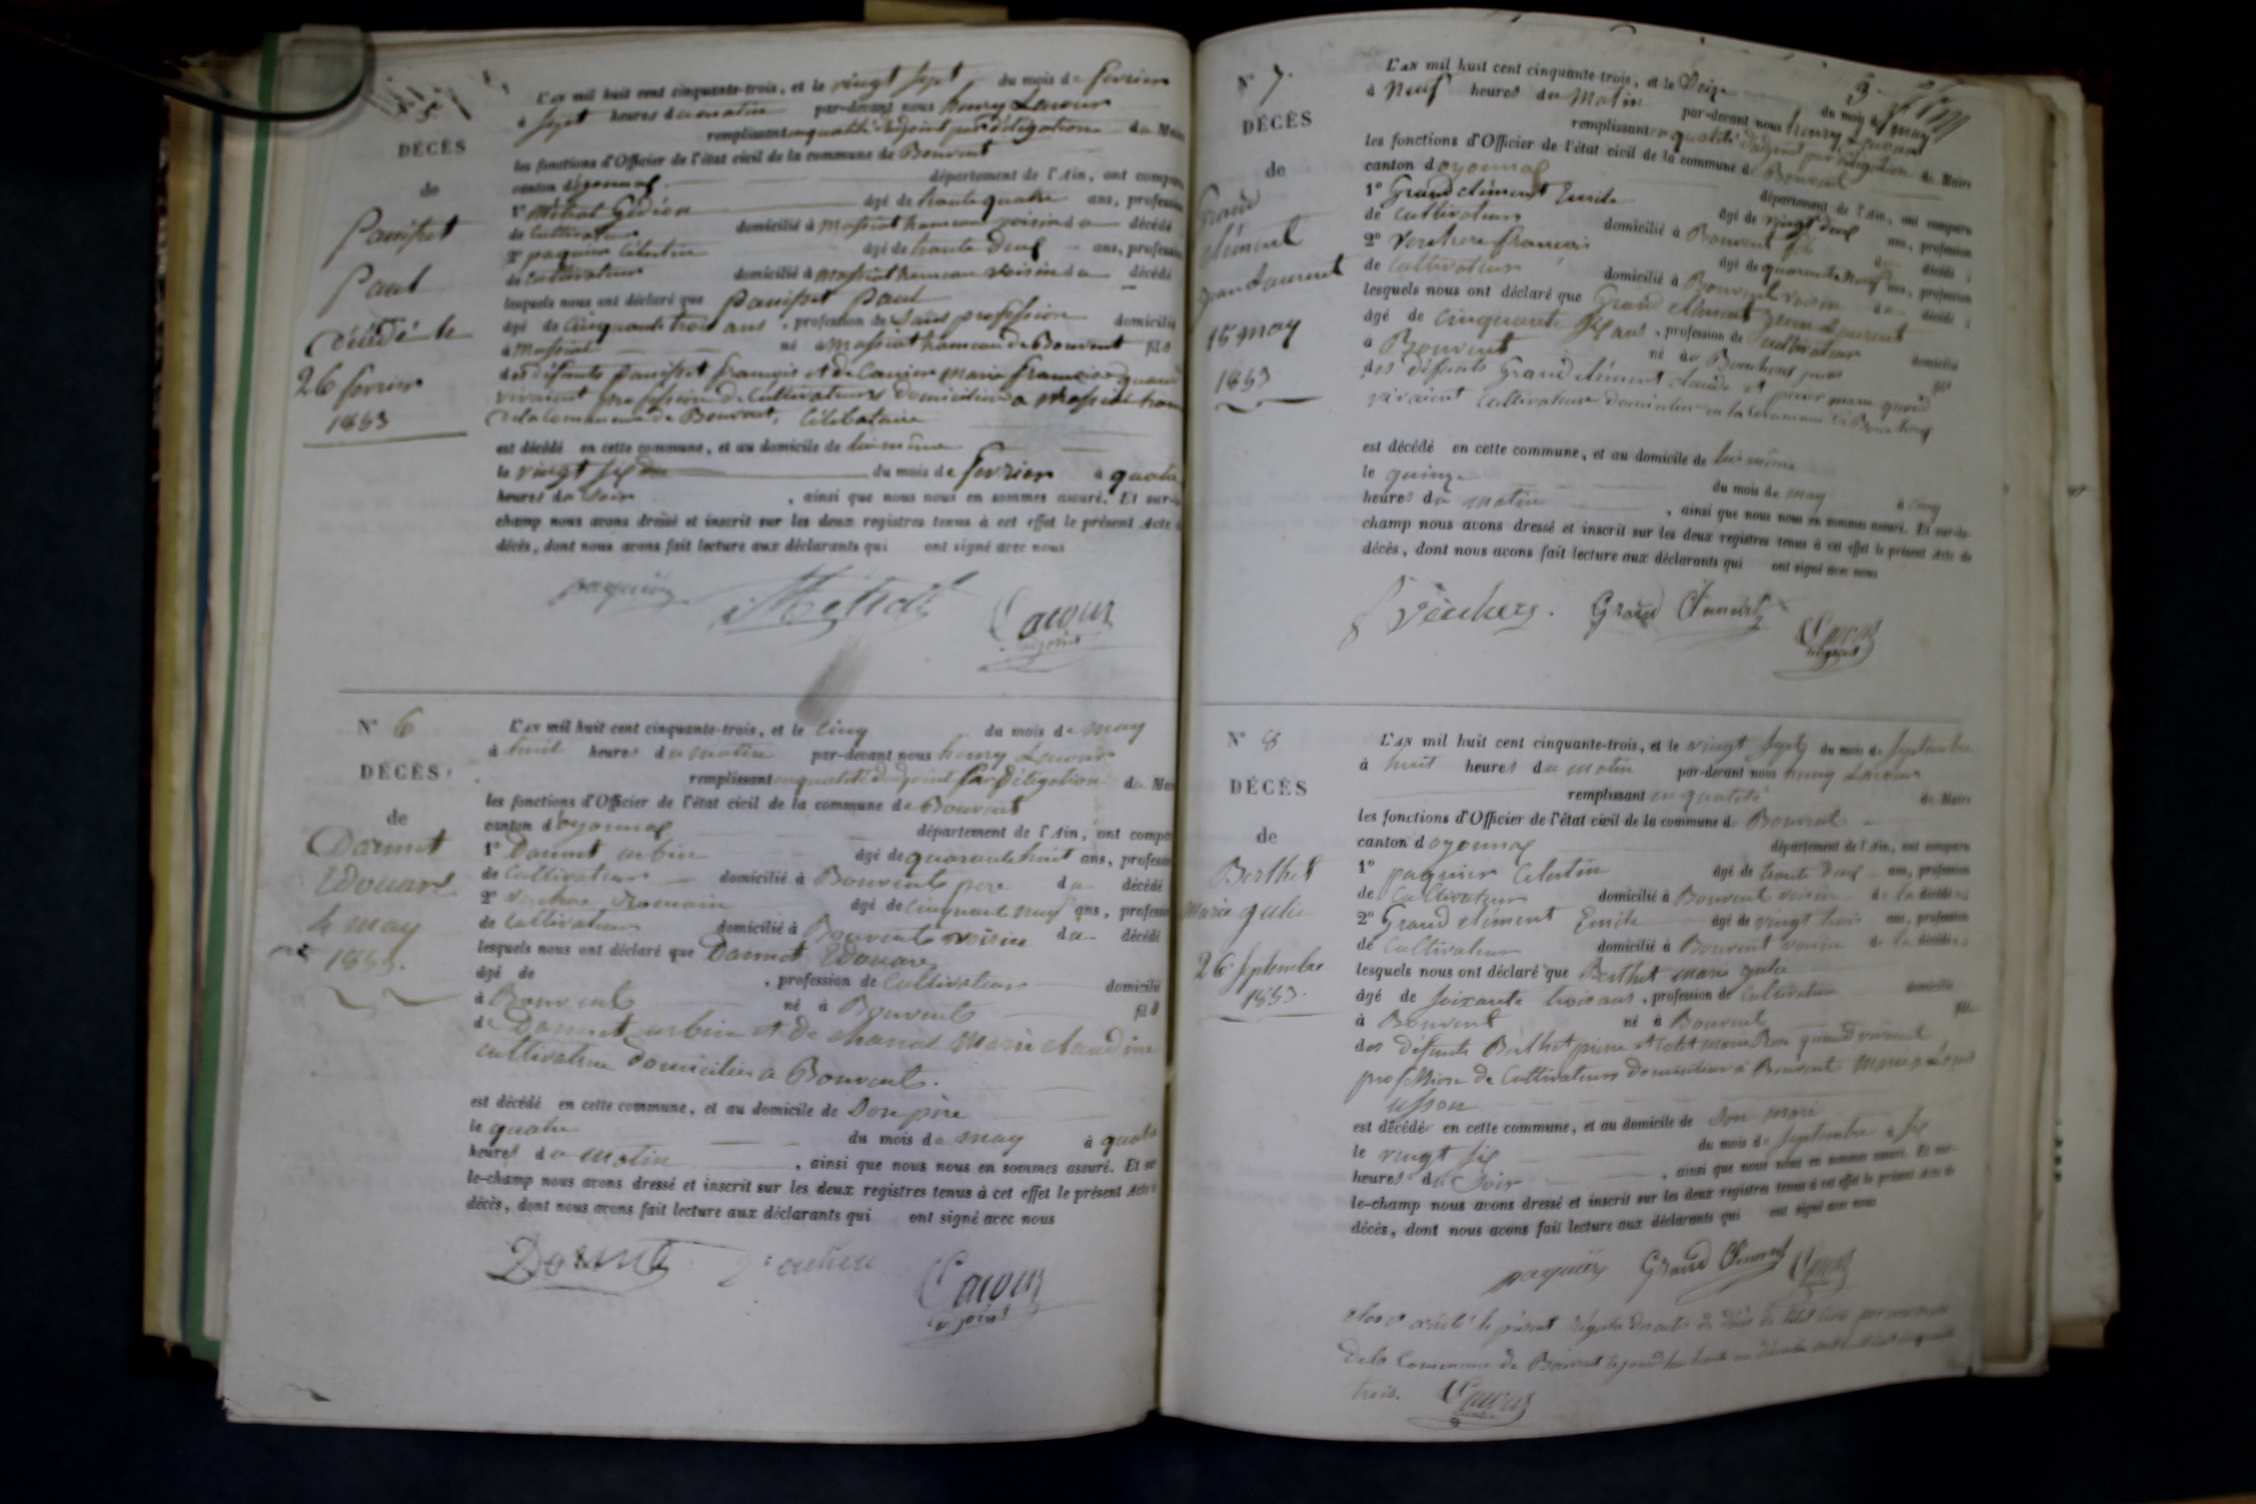 5
DÉCÈS
de
Panisset
Paul
Décédé le
26 fevrier
1853
L'AN mil huit cent cinquante-trois, et le vingt sept du mois de fevrier
à sept heures du matin par-devant nous henry Lacour
remplissant en qualité d'adjoint par délégation du Maire
les fonctions d'Officier de l'état civil de la commune de Bouvent
canton d'oyonnax département de l'Ain, ont comparu
1° Gédéon âgé de trente quatre ans, profession
de Cultivateur domicilié à Massiat hameau voisin du décédé
2° paquier Célestin âgé de trente deux ans, profession
de Cultivateur domicilié à Massiat hameau voisin du décédé
lesquels nous ont déclaré que Panisset Paul
âgé de Cinquante trois ans, profession de Sans profession domicilié
à Massiat né à Massiat hameau de Bouvent fils
des défunts Panisset françois et de marie françoise quand
vivaient profession de Cultivateurs domiciliés à Massiat
de la Commune de Bouvent, Célibataire
est décédé en cette commune, et au domicile de lui même
le vingt six du mois de fevrier à quatre
heures du Soir, ainsi que nous nous en sommes assuré. Et sur-le-
champ nous avons dressé et inscrit sur les deux registres tenus à cet effet le présent Acte
décès, dont nous avons fait lecture aux déclarants qui ont signé avec nous
paquier Lacour
adjoint
N° 6
DÉCÈS
de
Dannet
Edouard
4 may
1853.
L'AN mil huit cent cinquante-trois, et le cinq du mois de may
à huit heures du matin par-devant nous henry Lacour
remplissant en qualité d'adjoint par délégation du Maire
les fonctions d'Officier de l'état civil de la commune de Bouvent
canton d'oyonnax département de l'Ain, ont comparu
1° Dannet urbin âgé de quarante huit ans, profession
de Cultivateur domicilié à Bouvent pere du décédé
2° Romain âgé de cinquante neuf ans, profession
de Cultivateur domicilié à Bouvent voisin du décédé
lesquels nous ont déclaré que Dannet Edouard
âgé de , profession de Cultivateur domicilié
à Bouvent né à Bouvent fils
de Dannet urbin et de Marie claudine
cultivateur domiciliés à Bouvent.
est décédé en cette commune, et au domicile de Son père
le quatre du mois de may à quatre
heures du matin, ainsi que nous nous en sommes assuré. Et sur
le-champ nous avons dressé et inscrit sur les deux registres tenus à cet effet le présent Acte
décès, dont nous avons fait lecture aux déclarants qui ont signé avec nous
Dannet Lacour
adjoint
N° 7.
DÉCÈS
de
Grand
clément
Jean Laurent
15 may
1853
L'AN mil huit cent cinquante-trois, et le Seize du mois de may
à Neuf heures du Matin par-devant nous henry Lacour
remplissant en qualité d'adjoint par délégation du Maire
les fonctions d'Officier de l'état civil de la commune de Bouvent
canton d'oyonnax département de l'Ain, ont comparu
1° Grand clément Emile âgé de vingt deux ans, profession
de Cultivateur domicilié à Bouvent fils du décédé;
2° françois âgé de quarante neuf ans, profession
de Cultivateur domicilié à Bouvent voisin du décédé;
lesquels nous ont déclaré que Grand clément Jean Laurent
âgé de cinquante six ans, profession de Cultivateur domicilié
à Bouvent né à fils
des défunts Grand clément claude et marie quand
vivaient Cultivateurs domiciliés en la Commune de
est décédé en cette commune, et au domicile de lui même
le quinze du mois de may à cinq
heures du matin, ainsi que nous nous en sommes assuré. Et sur-le-
champ nous avons dressé et inscrit sur les deux registres tenus à cet effet le présent Acte de
décès, dont nous avons fait lecture aux déclarants qui ont signé avec nous
Grand Clément Lacour
adjoint
N° 8
DÉCÈS
de
Berthet
Marie Julie
26 septembre
1853.
L'AN mil huit cent cinquante-trois, et le vingt Sept du mois de Septembre
à huit heures du matin par-devant nous henry Lacour
remplissant en qualité de Maire
les fonctions d'Officier de l'état civil de la commune de Bouvent
canton d'oyonnax département de l'Ain, ont comparu
1° paquier Célestin âgé de trente deux ans, profession
de Cultivateur domicilié à Bouvent voisin de la décédée
2° Grand clément Emile âgé de vingt trois ans, profession
de Cultivateur domicilié à Bouvent voisin de la décédée
lesquels nous ont déclaré que Berthet marie Julie
âgé de soixante trois ans, profession de Cultivateur domicilié
à Bouvent né à Bouvent fille
des défunts Berthet pierre et quand vivaient
profession de Cultivateurs domiciliés à Bouvent
est décédé en cette commune, et au domicile de Son mari
le vingt six du mois de Septembre à six
heures du Soir, ainsi que nous nous en sommes assuré. Et sur-
le-champ nous avons dressé et inscrit sur les deux registres tenus à cet effet le présent Acte de
décès, dont nous avons fait lecture aux déclarants qui ont signé avec nous
paquier Grand Clément Lacour
clos et arrêté le présent Registre des actes de décès
de la Commune de Bouvent
trois. Lacour